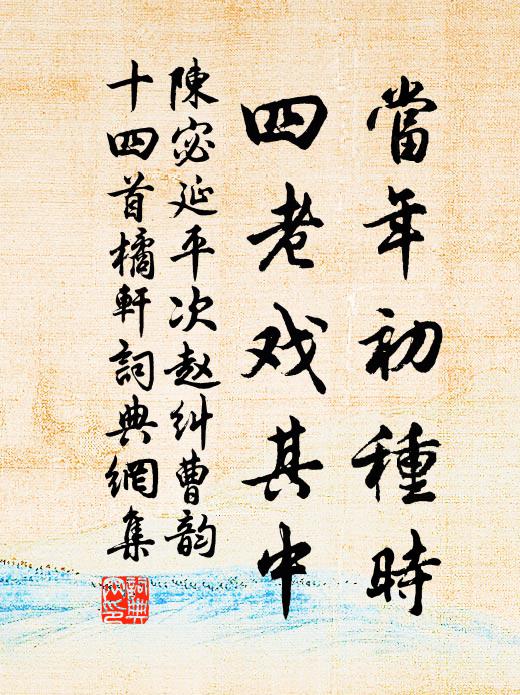 當年初種時
四老戏其中
陳宓延平次赵糾曹韵
十四首橘軒詞典網集